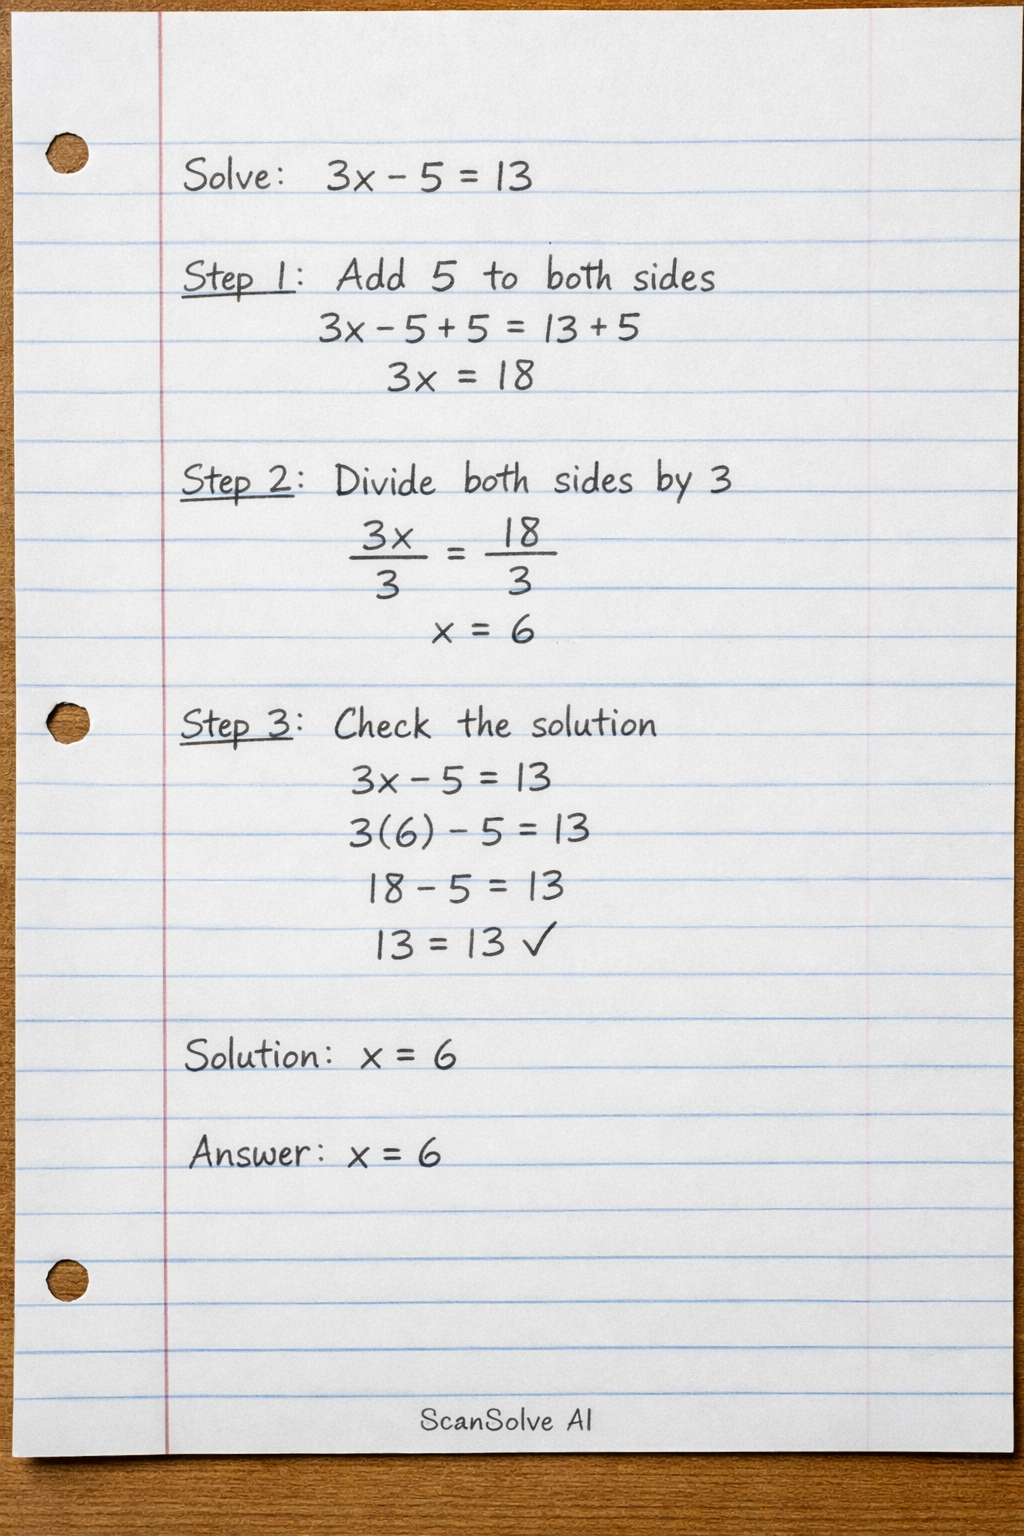 Solve: 3x - 5 = 13
Step 1: Add 5 to both sides
3x - 5 + 5 = 13 + 5
3x = 18
Step 2: Divide both sides by 3
3x/3 = 18/3
x = 6
Step 3: Check the solution
3x - 5 = 13
3(6) - 5 = 13
18 - 5 = 13
13 = 13 ✓
Solution: x = 6
Answer: x = 6
ScanSolve AI